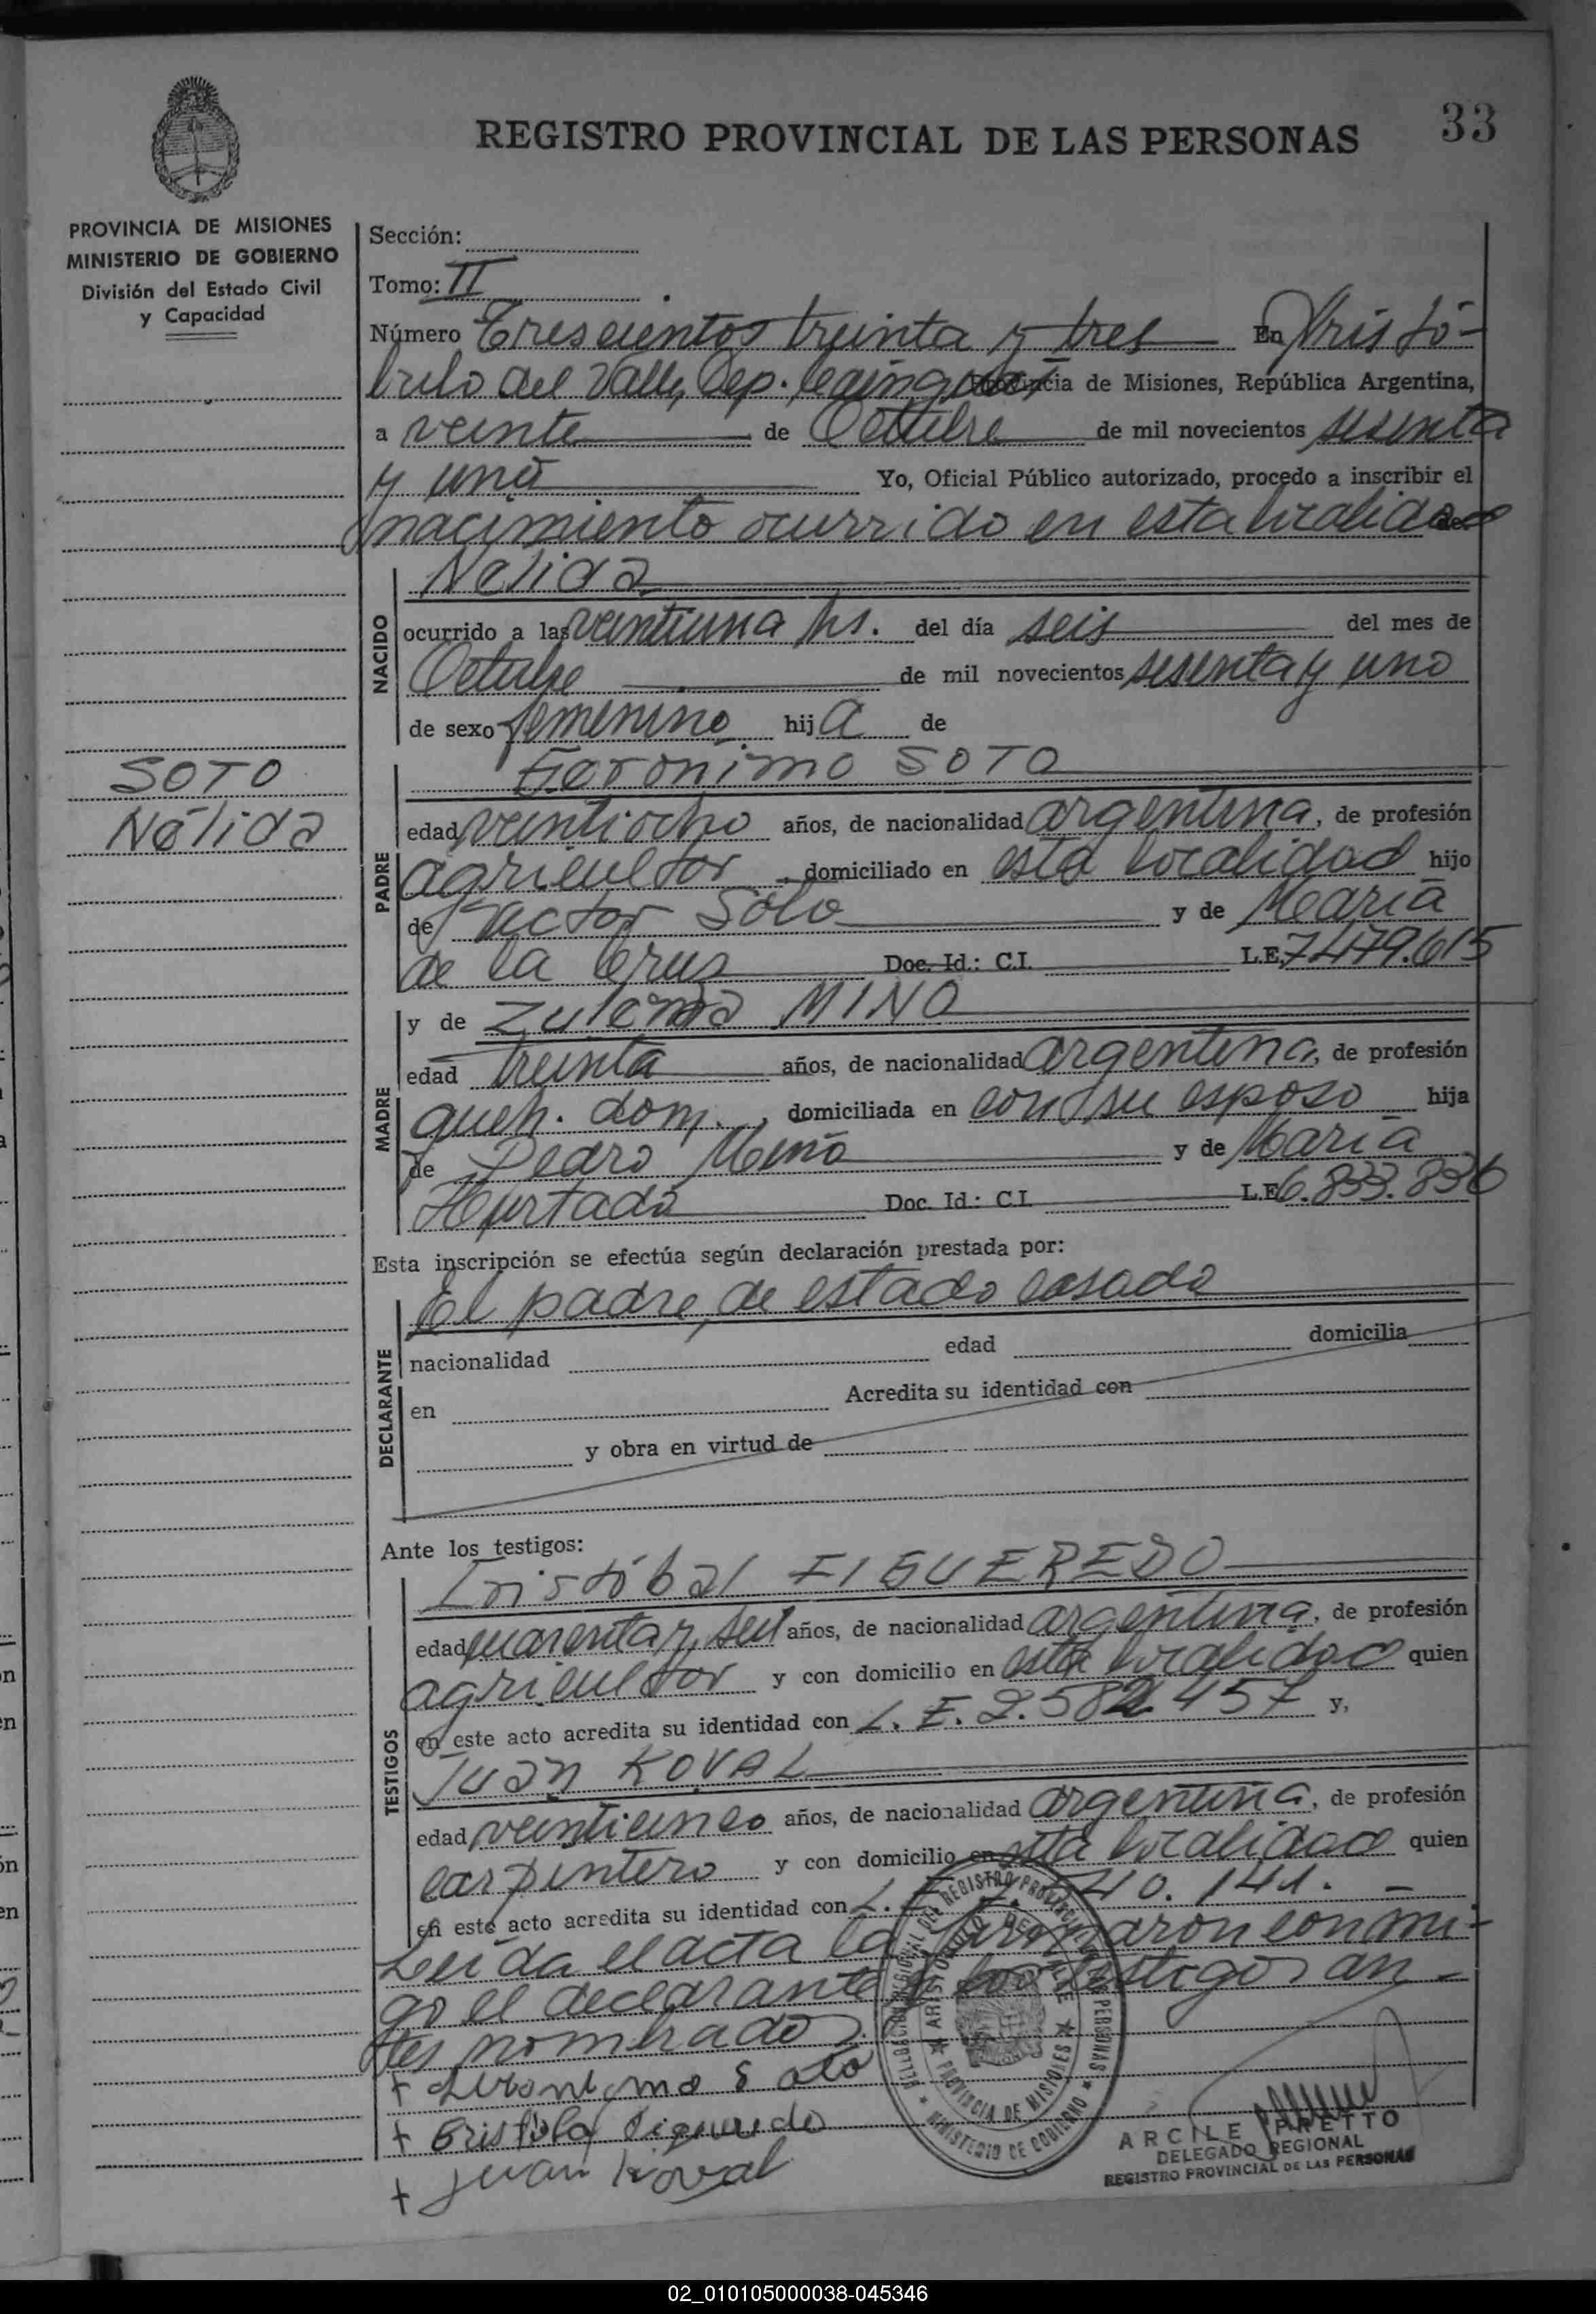 33
REGISTRO PROVINCIAL DE LAS PERSONAS
PROVINCIA DE MISIONES
MINISTERIO DE GOBIERNO
División del Estado Civil
y Capacidad
SOTO
Nélida
Sección:
Tomo: II
Número Trescientos treinta y tres En Aristó-
bulo del Valle, Dep. Cainguás, Provincia de Misiones, República Argentina,
a veinte de Octubre de mil novecientos sesenta
y uno Yo, Oficial Público autorizado, procedo a inscribir el
nacimiento ocurrido en esta localidad de
NACIDO
Nélida
ocurrido a las veintiuna hs. del día seis del mes de
Octubre de mil novecientos sesenta y uno
de sexo femenino hija de
PADRE
Gerónimo SOTO
edad veintiocho años, de nacionalidad argentina, de profesión
agricultor, domiciliado en esta localidad hijo
de Soto y de María
de la Cruz Doc. Id.: C.I. L.E. 7479.615
MADRE
y de Zulema MINO
edad treinta años, de nacionalidad argentina, de profesión
queh. dom., domiciliada en con su esposo hija
de Pedro Mino y de María
Hurtado Doc. Id.: C.I. L.E. 6.833.836
Esta inscripción se efectúa según declaración prestada por:
DECLARANTE
El padre, de estado casado
nacionalidad edad domicilia
en Acredita su identidad con
y obra en virtud de
Ante los testigos:
TESTIGOS
Cristóbal FIGUEREDO
edad cuarenta y seis años, de nacionalidad argentina, de profesión
agricultor y con domicilio en esta localidad quien
en este acto acredita su identidad con L. E. 2.582.457 y,
Juan KOVAL
edad veinticinco años, de nacionalidad argentina, de profesión
carpintero y con domicilio en esta localidad quien
en este acto acredita su identidad con L. 40.141.-
Leída el acta la firmaron conmi-
go el declarante y los testigos an-
tes nombrados.
+ Geronimo Soto
+ Figueredo
+ Juan Koval
DELEGACION REGIONAL DEL REGISTRO PROVINCIAL DE LAS PERSONAS
★ ARISTOBULO DEL VALLE ★
PROVINCIA DE MISIONES
★ MINISTERIO DE GOBIERNO ★
ARCILE PRETTO
DELEGADO REGIONAL
REGISTRO PROVINCIAL DE LAS PERSONAS
02_010105000038-045346